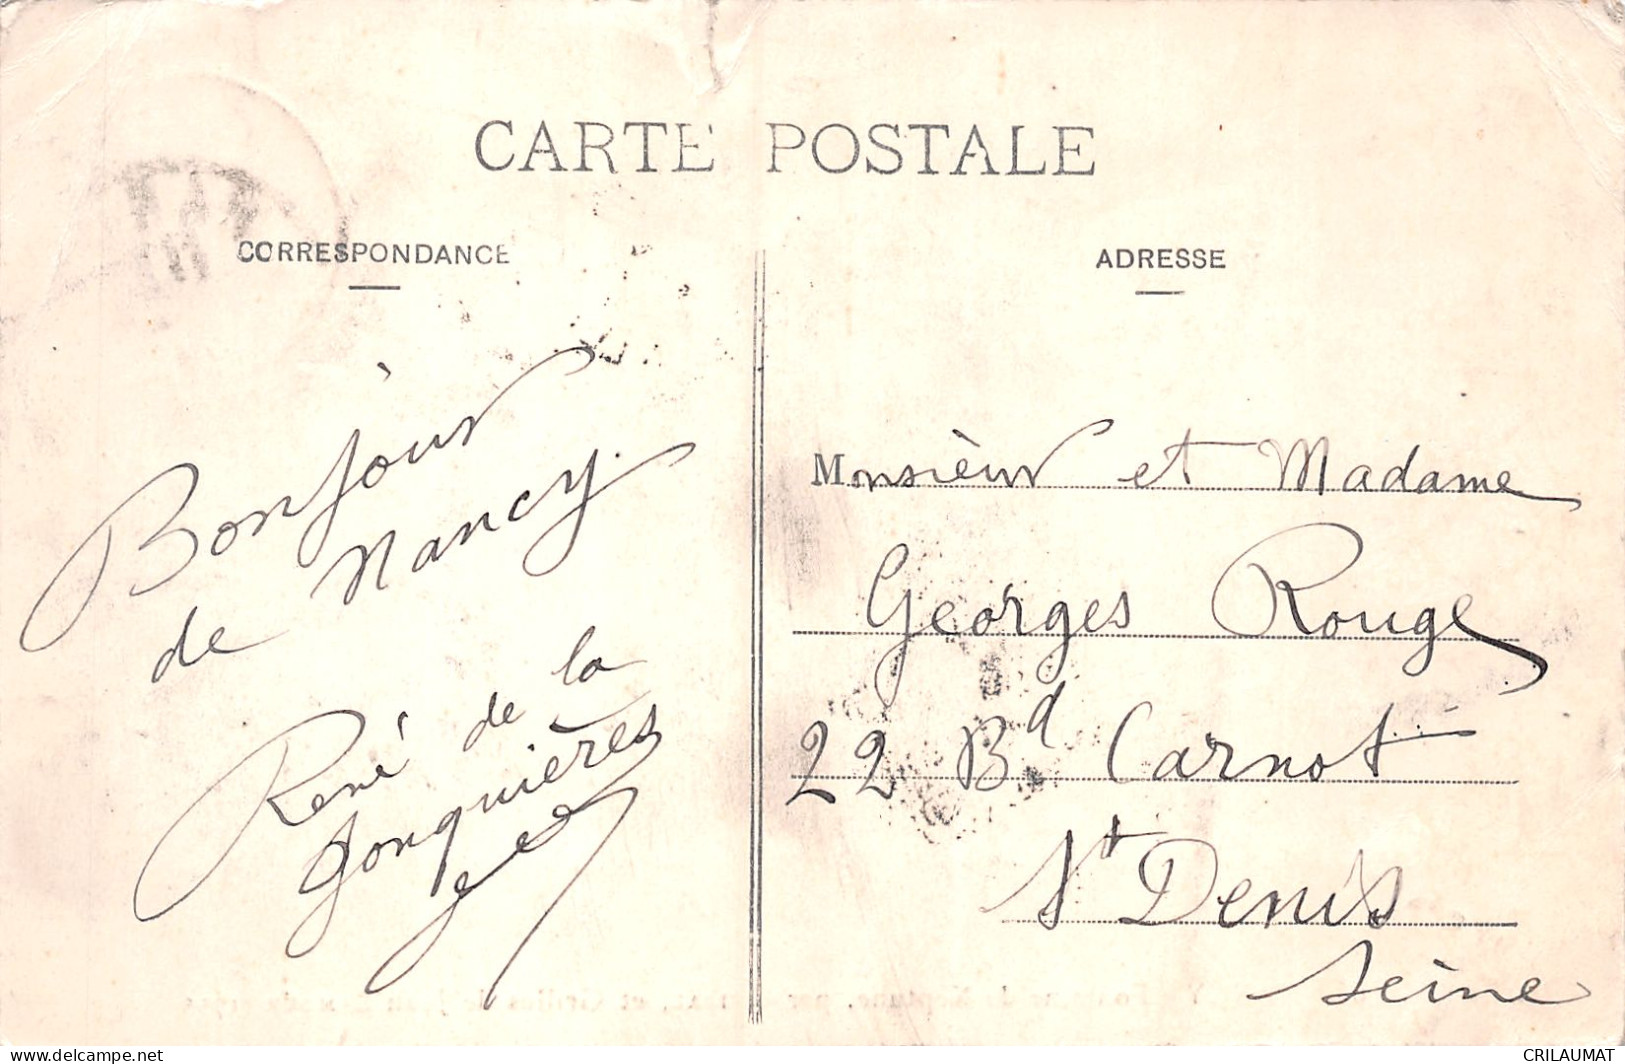 CARTE POSTALE
CORRESPONDANCE
ADRESSE
Bonjour
de Nancy.
René de la
Jonquières
Monsieur et Madame
Georges Rouge
22 Bd Carnot
St Denis
Seine
delcampe.net
CRILAUMAT